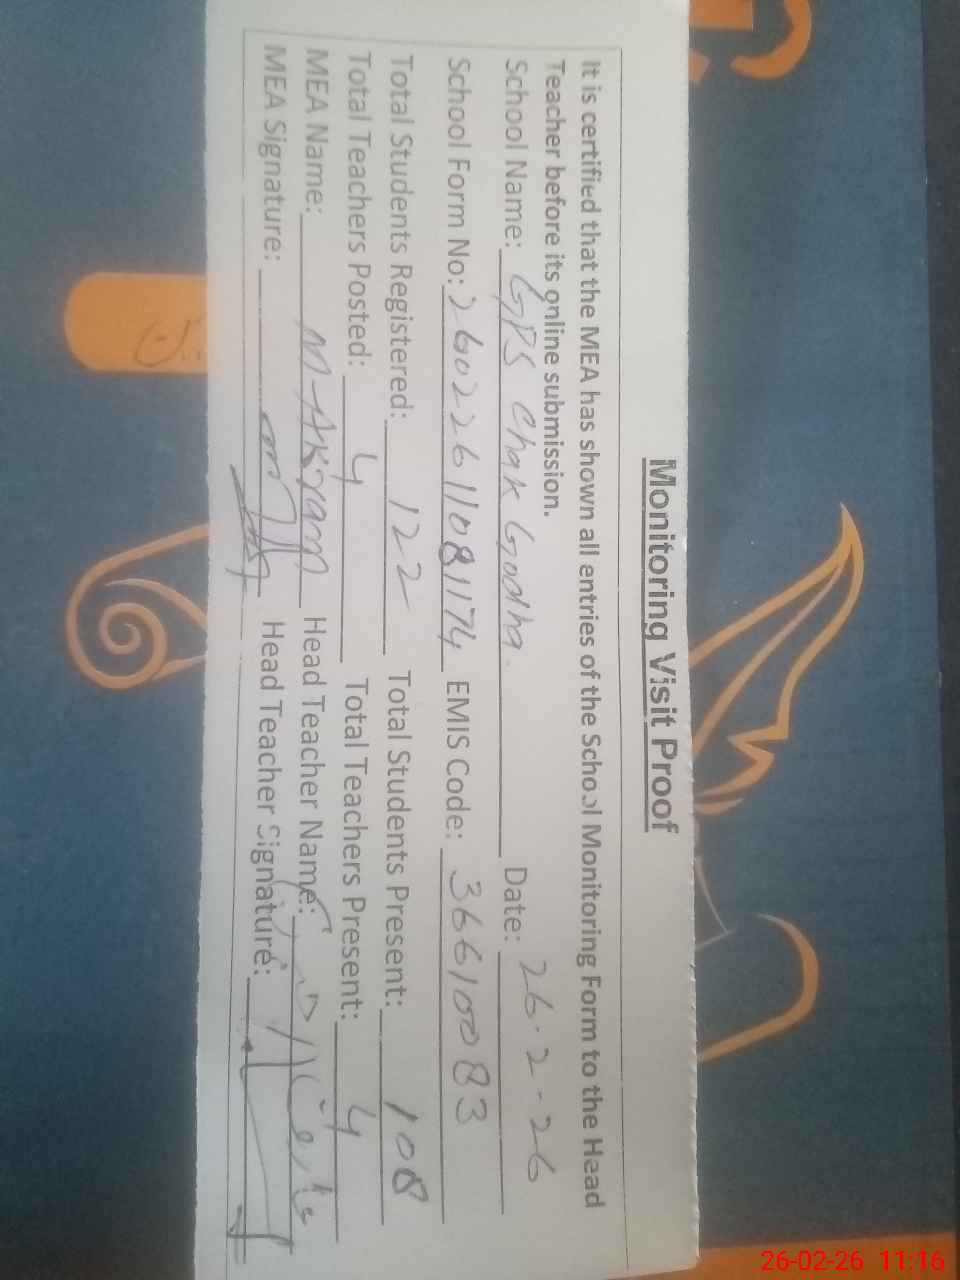 Monitoring Visit Proof
It is certified that the MEA has shown all entries of the School Monitoring Form to the Head
Teacher before its online submission.
School Name: GPS Chak Godha. Date: 26-2-26
School Form No: 26022611081174 EMIS Code: 36610083
Total Students Registered: 122 Total Students Present: 108
Total Teachers Posted: 4 Total Teachers Present: 4
MEA Name: M-Akram Head Teacher Name:
MEA Signature: Head Teacher Signature:
26-02-26 11:16